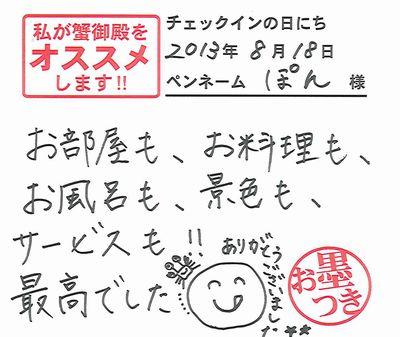 私が蟹御殿を
オススメ
します!!
チェックインの日にち
2013年 8月18日
ペンネーム ぽん 様
お部屋も、お料理も、
お風呂も、景色も、
サービスも!!
最高でした
ありがとう
ございました★★
お墨つき